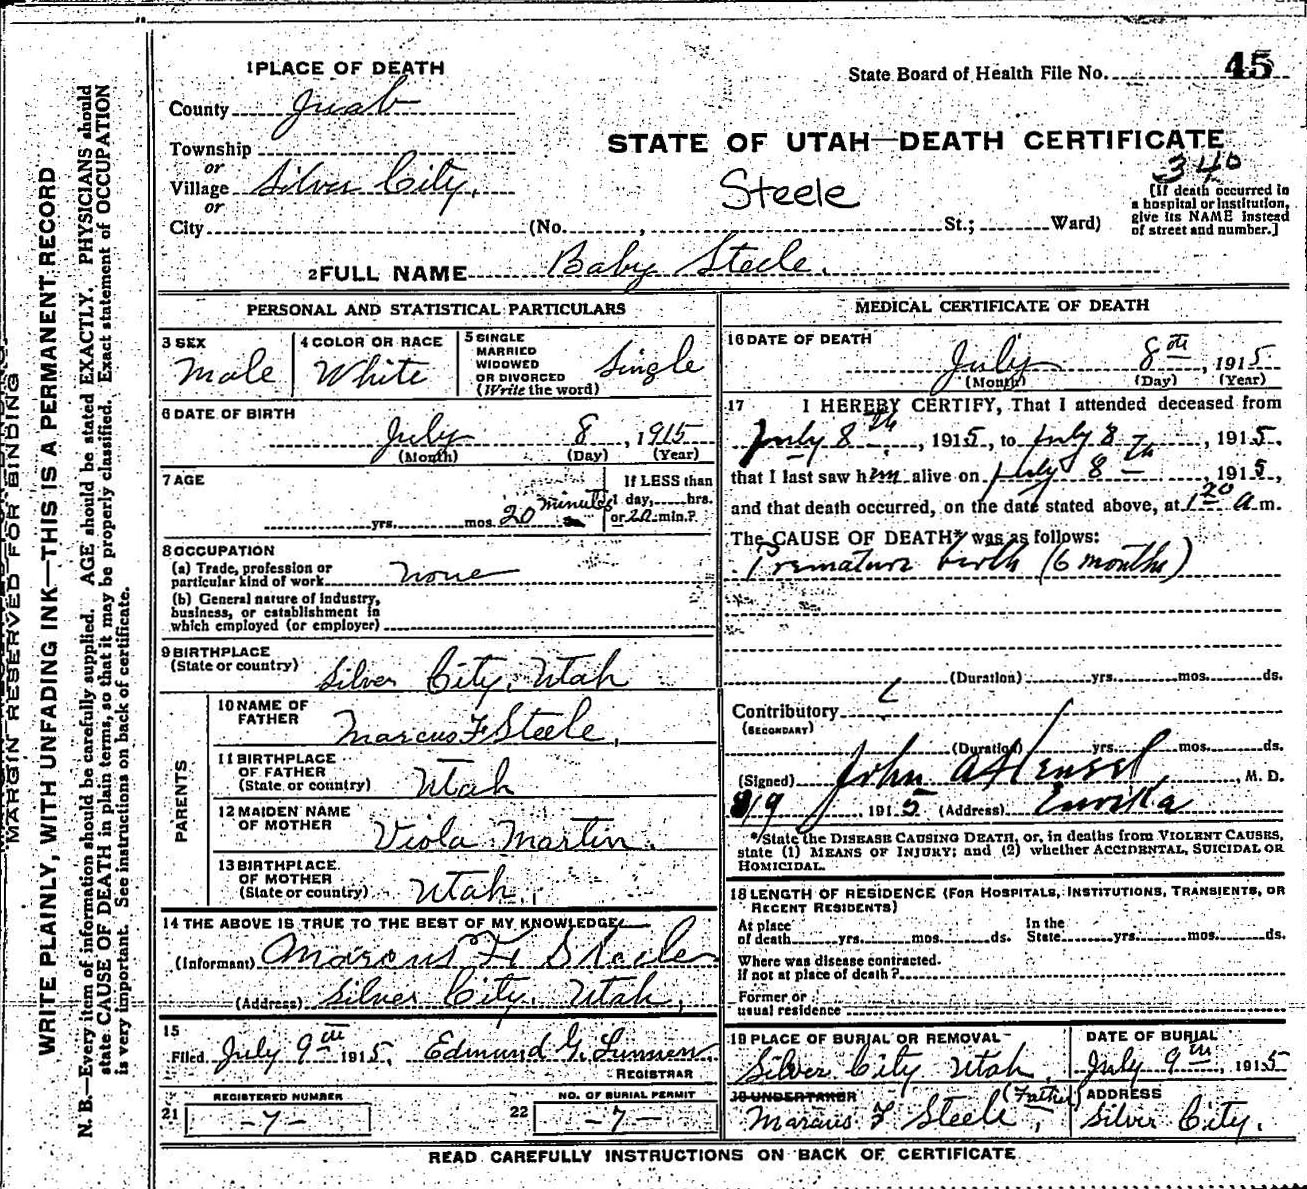 1 PLACE OF DEATH
State Board of Health File No. 45
County Juab
STATE OF UTAH—DEATH CERTIFICATE
340
Township
or
Village Silver City,
or
City
Steele
(No. , St.; Ward)
[If death occurred in
a hospital or institution,
give its NAME instead
of street and number.]
2 FULL NAME Baby Steele.
PERSONAL AND STATISTICAL PARTICULARS
3 SEX
Male
4 COLOR OR RACE
White
5 SINGLE
MARRIED
WIDOWED
OR DIVORCED
(Write the word)
Single
6 DATE OF BIRTH
July 8, 1915
(Month) (Day) (Year)
7 AGE
If LESS than
1 day, hrs.
or 20 min.?
yrs. mos. 20 minutes
8 OCCUPATION
(a) Trade, profession or
particular kind of work none
(b) General nature of industry,
business, or establishment in
which employed (or employer)
9 BIRTHPLACE
(State or country)
Silver City, Utah
PARENTS
10 NAME OF
FATHER
Marcus F Steele,
11 BIRTHPLACE
OF FATHER
(State or country)
Utah
12 MAIDEN NAME
OF MOTHER
Viola Martin.
13 BIRTHPLACE
OF MOTHER
(State or country)
Utah.
14 THE ABOVE IS TRUE TO THE BEST OF MY KNOWLEDGE
(Informant) Marcus F. Steele
(Address) Silver City, Utah,
15
Filed July 9th 1915, Edmund G.
REGISTRAR
REGISTERED NUMBER
21 -7-
NO. OF BURIAL PERMIT
22 -7-
MEDICAL CERTIFICATE OF DEATH
16 DATE OF DEATH
July 8th, 1915
(Month) (Day) (Year)
17 I HEREBY CERTIFY, That I attended deceased from
July 8th, 1915, to July 8th, 1915,
that I last saw him alive on July 8th, 1915,
and that death occurred, on the date stated above, at 1 20 a m.
The CAUSE OF DEATH* was as follows:
Premature birth (6 months)
(Duration) yrs. mos. ds.
Contributory
(SECONDARY)
(Duration) yrs. mos. ds.
(Signed) John A Hensel, M. D.
9, 1915 (Address) Eureka
*State the DISEASE CAUSING DEATH, or, in deaths from VIOLENT CAUSES,
state (1) MEANS OF INJURY; and (2) whether ACCIDENTAL, SUICIDAL OR
HOMICIDAL.
18 LENGTH OF RESIDENCE (FOR HOSPITALS, INSTITUTIONS, TRANSIENTS, OR
RECENT RESIDENTS)
At place
of death yrs. mos. ds.
In the
State yrs. mos. ds.
Where was disease contracted.
if not at place of death?
Former or
usual residence
19 PLACE OF BURIAL OR REMOVAL
Silver City Utah
DATE OF BURIAL
July 9th, 1915
20 UNDERTAKER (Father)
Marcus F Steele,
ADDRESS
Silver City.
READ CAREFULLY INSTRUCTIONS ON BACK OF CERTIFICATE
MARGIN RESERVED FOR BINDING
WRITE PLAINLY, WITH UNFADING INK—THIS IS A PERMANENT RECORD
N. B.—Every item of information should be carefully supplied. AGE should be stated EXACTLY. PHYSICIANS should
state CAUSE OF DEATH in plain terms, so that it may be properly classified. Exact statement of OCCUPATION
is very important. See instructions on back of certificate.